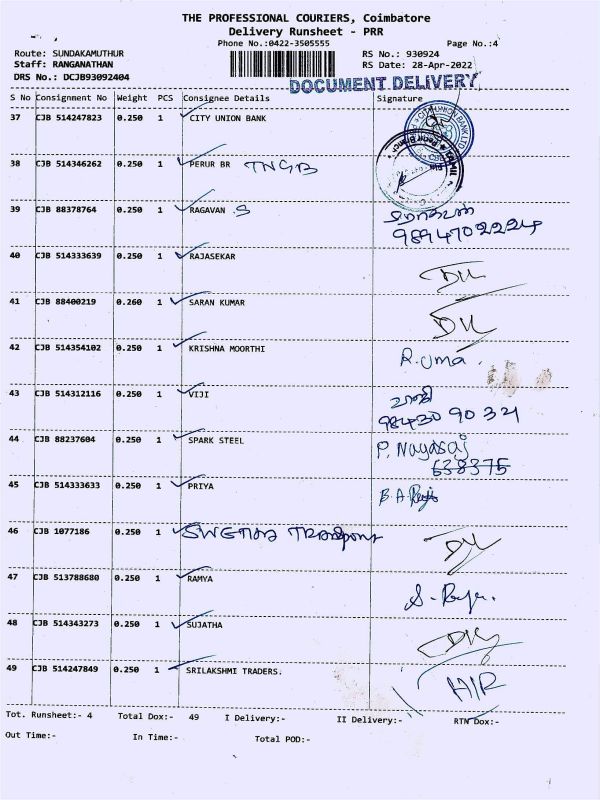 THE PROFESSIONAL COURIERS, Coimbatore
Delivery Runsheet - PRR
Phone No.:0422-3505555 Page No.:4
Route: SUNDAKAMUTHUR RS No.: 930924
Staff: RANGANATHAN RS Date: 28-Apr-2022
DRS No.: DCJB93092404
DOCUMENT DELIVERY
S No Consignment No Weight PCS Consignee Details Signature
37 CJB 514247823 0.250 1 CITY UNION BANK
38 CJB 514346262 0.250 1 PERUR BR TNGB
39 CJB 88378764 0.250 1 RAGAVAN S
9894702224
40 CJB 514333639 0.250 1 RAJASEKAR
41 CJB 88400219 0.260 1 SARAN KUMAR
42 CJB 514354102 0.250 1 KRISHNA MOORTHI R.uma.
43 CJB 514312116 0.250 1 VIJI
98430 90321
44 CJB 88237604 0.250 1 SPARK STEEL P. Nagaraj
638375
45 CJB 514333633 0.250 1 PRIYA B.A
46 CJB 1077186 0.250 1 SWETHA TRANSPORT
47 CJB 513788680 0.250 1 RAMYA
48 CJB 514343273 0.250 1 SUJATHA
49 CJB 514247849 0.250 1 SRILAKSHMI TRADERS.
Tot. Runsheet:- 4 Total Dox:- 49 I Delivery:- II Delivery:- RTN Dox:-
Out Time:- In Time:- Total POD:-